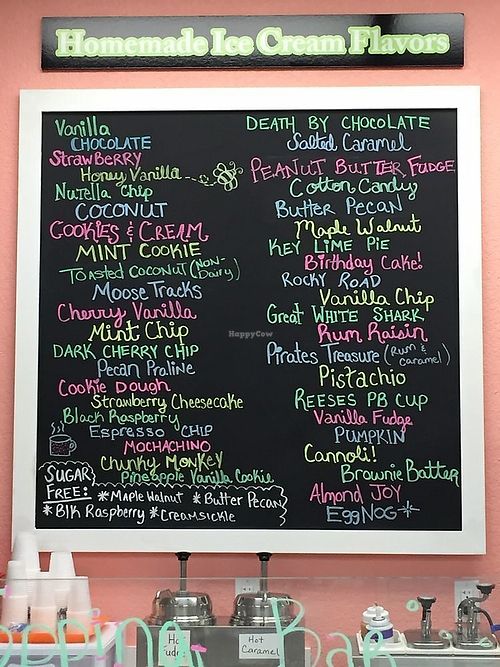 Homemade Ice Cream Flavors
Vanilla
CHOCOLATE
STRAWBERRY
Honey Vanilla
Nutella Chip
COCONUT
COOKIES & CREAM
MINT COOKIE
TOASTED COCONUT (NON-Dairy)
Moose Tracks
Cherry Vanilla
Mint Chip
DARK CHERRY CHIP
Pecan Praline
Cookie Dough
Strawberry Cheesecake
Black Raspberry
Espresso CHIP
MOCHACHINO
CHUNKY MONKEY
Pineapple Vanilla Cookie
SUGAR FREE:
*Maple Walnut *Butter Pecan
*Blk Raspberry *Creamsickle
DEATH BY CHOCOLATE
Salted Caramel
PEANUT BUTTER FUDGE
Cotton Candy
Butter Pecan
Maple Walnut
KEY LIME PIE
Birthday Cake!
ROCKY ROAD
Vanilla Chip
Great WHITE SHARK
Rum Raisin
Pirates Treasure (Rum & Caramel)
Pistachio
REESES PB CUP
Vanilla Fudge
PUMPKIN
Cannoli!
Brownie Batter
Almond JOY
EggNOG*
HappyCow
Hot
Caramel
Bar